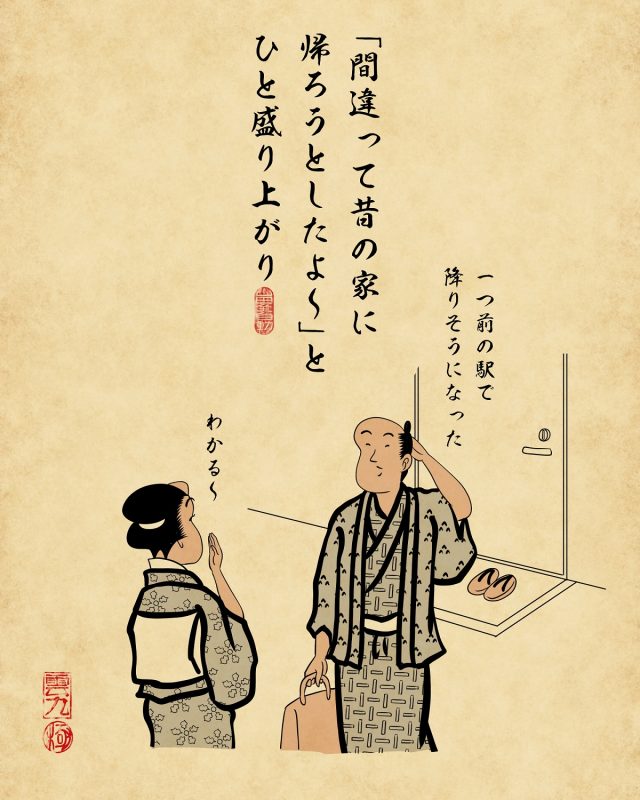 「間違って昔の家に
帰ろうとしたよ〜」と
ひと盛り上がり
一つ前の駅で
降りそうになった
わかる〜